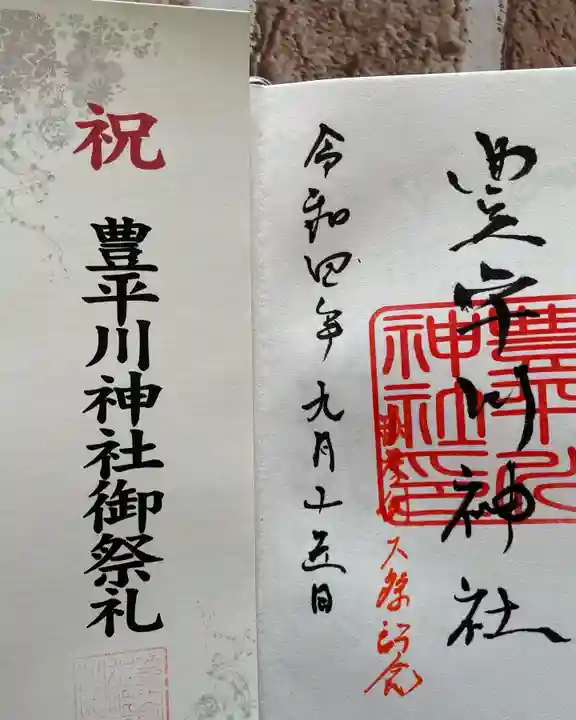 祝
豊平川神社御祭礼
豊平川神社
豊平川神社印
大祭記念
令和四年九月十五日